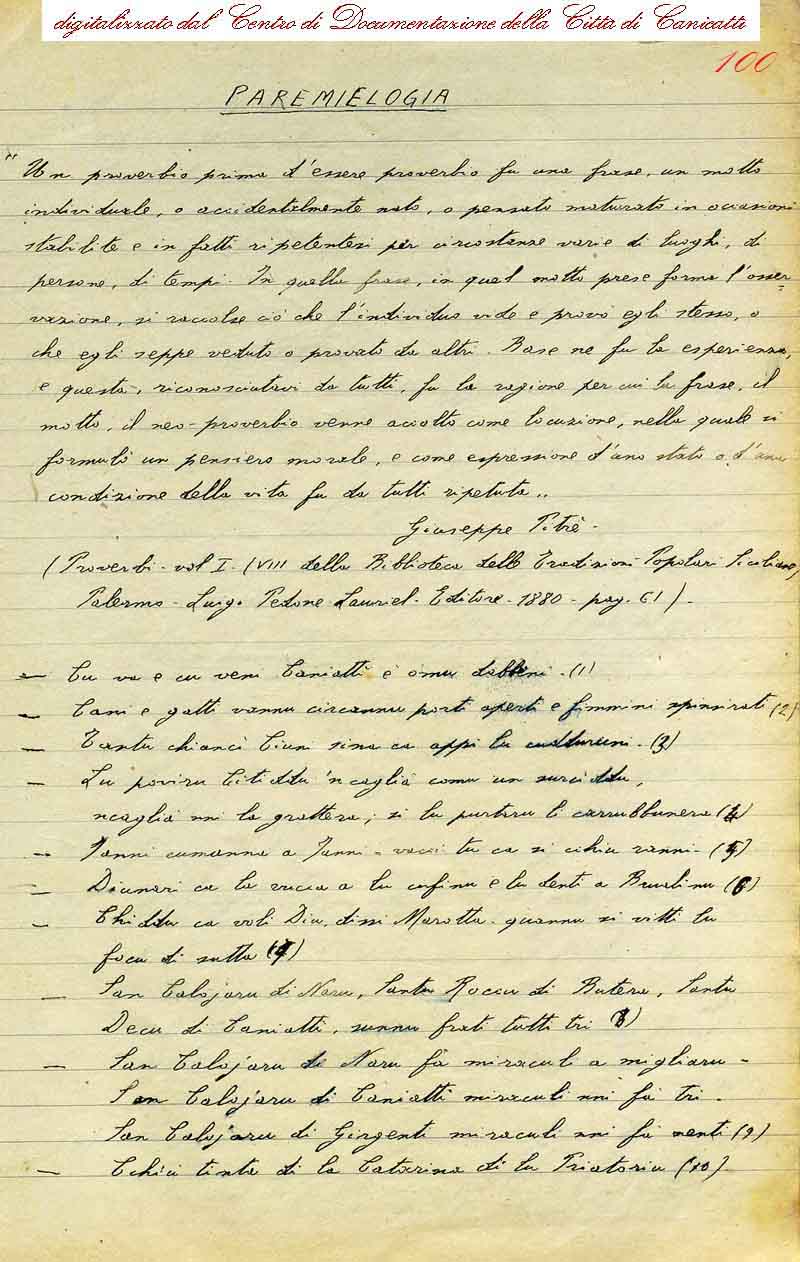 digitalizzato dal Centro di Documentazione della Città di Canicattì
100
PAREMIELOGIA
"Un proverbio prima d'essere proverbio fu una frase, un motto
individuale, o accidentalmente nato, o pensato maturato in occasioni
stabilite e in fatti ripetentesi per circostanze varie di luoghi, di
persone, di tempi. In quella frase, in quel motto prese forma l'osser-
vazione, si raccolse ciò che l'individuo vide e provò egli stesso, o
che egli seppe veduto o provato da altri. Base ne fu la esperienza,
e questa, riconosciutavi da tutti, fu la ragione per cui la frase, il
motto, il neo-proverbio venne accolto come locuzione, nella quale si
formulò un pensiero morale, e come espressione d'uno stato o d'una
condizione della vita fu da tutti ripetuta..
Giuseppe Pitrè-
(Proverbi-vol I-(VIII della Biblioteca delle Tradizioni Popolari Siciliane,
Palermo-Luigi Pedone Lauriel-Editore-1880-pag. 61).
— Cu va e cu veni Caniattì è omu dabbeni-(1)
— Cani e gatti vannu circannu porti aperti e fimmini spinsirati (2)
— Tantu chiancì Ciuni sina ca appi lu cudduruni-(3)
— Lu poviru Titiddu 'ncaglià comu un surciddu,
ncaglià nni la grattera; si lu purtaru li carrubbunera (4)
— Janni cumanna a Janni-vacci tu ca si cchiu ranni-(5)
— Dicinari ca la vucca a lu cufinu e lu denti a Buvalinu (6)
— Chiddu ca voli Diu, dissi Marotta-quannu si vitti lu
focu di sutta (7)
— San Calojaru di Naru, Santu Roccu di Butera, Santu
Decu di Caniattì, sunnu frati tutti tri (8)
— San Calojaru di Naru fà miraculi a migliaru-
San Calojaru di Caniattì miraculi nni fà tri-
San Calojaru di Girgenti miraculi nni fà nenti (9)
— Cchiù tinta di la Catarina di lu Priatoriu (10)